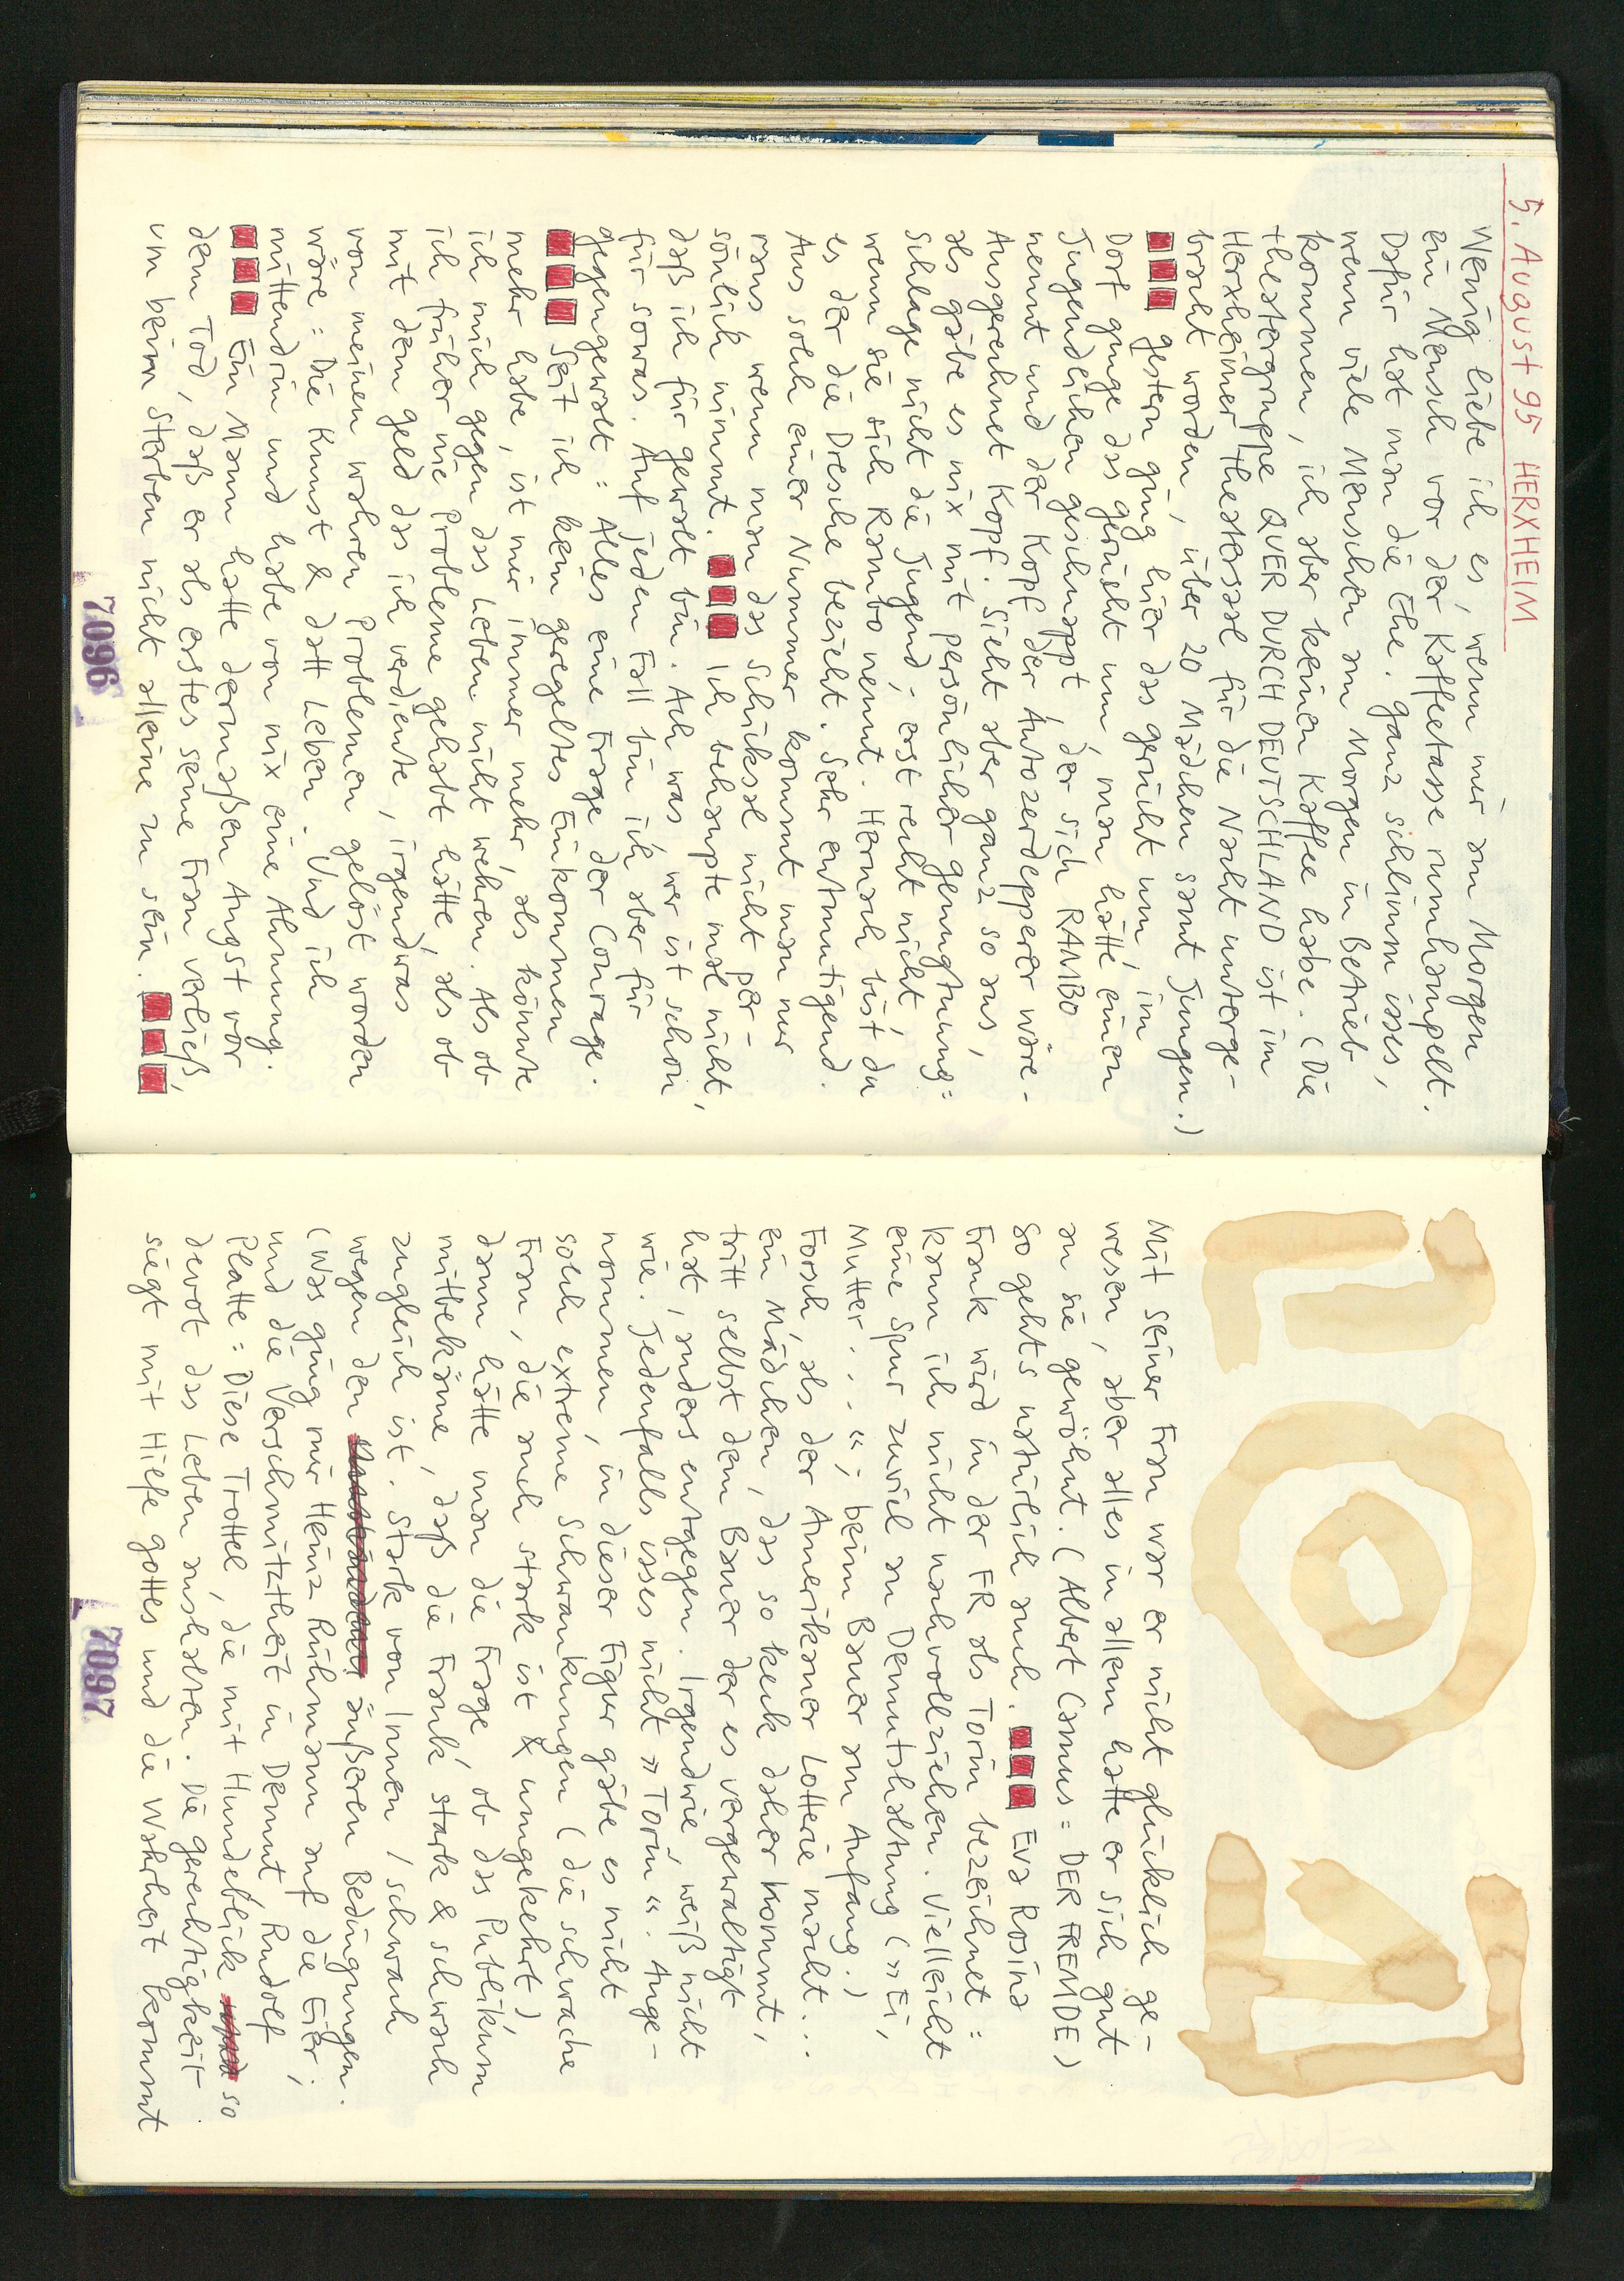 5. August 95 HERXHEIM
Wenig liebe ich es, wenn mir am Morgen
ein Mensch vor der Kaffeetasse rumhampelt.
Dafür hat man die Ehe. Ganz schlimm isses,
wenn viele Menschen am Morgen in Betrieb
kommen, ich aber keinen Kaffee habe. (Die
theatergruppe QUER DURCH DEUTSCHLAND ist im
Herxheimer theatersaal für die Nacht unterge-
bracht worden, über 20 Mädchen samt Jungen.)
Gestern ging hier das Gerücht um, im
Dorf ginge das Gerücht um, man hätte einen
Jugendlichen geschnappt, der sich RAMBO
nennt und der Kopf der Autozerdepperer wäre.
Ausgerechnet Kopf. Sieht aber ganz so aus,
als gäbe es nix mit persönlicher Genugtuung:
Schlage nicht die Jugend; erst recht nicht,
wenn sie sich Rambo nennt. Hernach bist du
es der die Dresche bezieht. Sehr entmutigend.
Aus solch einer Nummer kommt man nur
raus wenn man das Schicksal nicht per-
sönlich nimmt. Ich behaupte mal nicht,
daß ich für Gewalt bin. Ach was, wer ist schon
für sowas. Auf jeden Fall bin ich aber für
Gegengewalt: Alles eine Frage der Courage.
Seit ich kein geregeltes Einkommen
mehr habe, ist mir immer mehr, als könnte
ich mich gegen das Leben nicht wehren. Als ob
ich früher nie Probleme gehabt hätte, als ob
mit dem Geld das ich verdiente, irgendwas
von meinen wahren Problemen gelöst worden
wäre: Die Kunst & datt Leben. Und ich
mittendrin und habe von nix eine Ahnung.
Ein Mann hatte dermaßen Angst vor
dem Tod, daß er als erstes seine Frau verließ,
um beim Sterben nicht alleine zu sein.
7096
Mit seiner Frau war er nicht glücklich ge-
wesen, aber alles in allem hatte er sich gut
an sie gewöhnt. (Albert Camus: DER FREMDE)
So gehts natürlich auch. Eva Rosina
Frank wird in der FR als Torin bezeichnet:
kann ich nicht nachvollziehen. Vielleicht
eine Spur zuviel an Demutshaltung (»Ei,
Mutter...«; beim Bauer am Anfang.)
Forsch, als der Amerikaner Lotterie macht...
ein Mädchen, das so keck daher kommt,
tritt selbst dem Bauer der es vergewaltigt
hat, anders entgegen. Irgendwie, weiß nicht
wie. Jedenfalls isses nicht »Torin«. Ange-
nommen, in dieser Figur gäbe es nicht
solch extreme Schwankungen (die schwache
Frau, die auch stark ist & umgekehrt),
dann hätte man die Frage, ob das Publikum
mitbekäme, daß die Frank stark & schwach
zugleich ist. Stark von Innen / schwach
wegen den äußeren Bedingungen.
(Was ging mir Heinz Rühmann auf die Eier;
und die Verschmitztheit in Demut Rudolf
Platte: Diese Trottel, die mit Hundeblick so
devot das Leben aushalten. Die Gerechtigkeit
siegt mit Hilfe Gottes und die Wahrheit kommt
7097